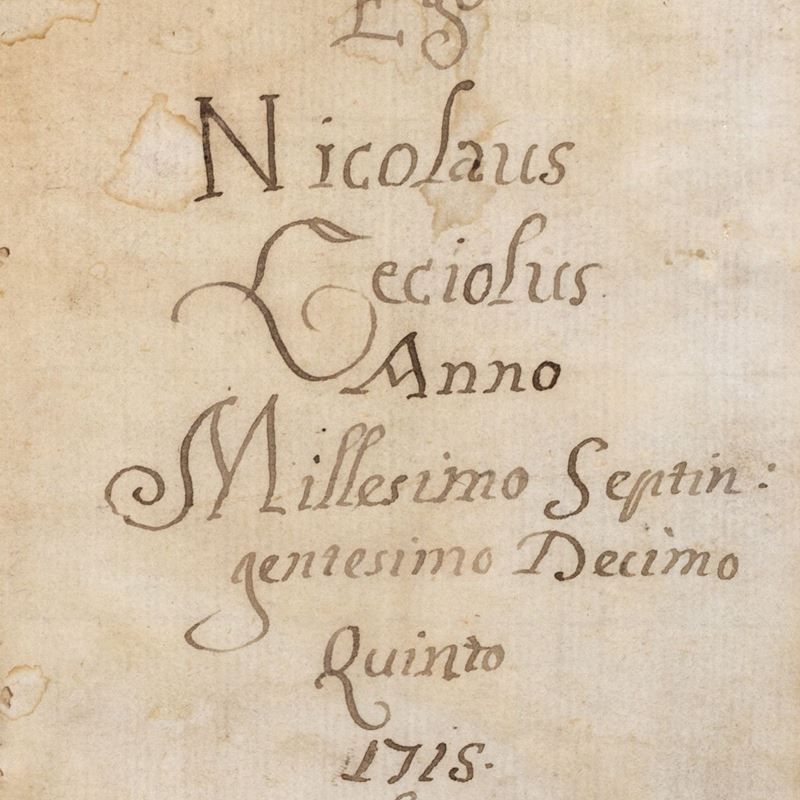 Nicolaus
Leciolus
Anno
Millesimo Septin:
gentesimo Decimo
Quinto
1715.